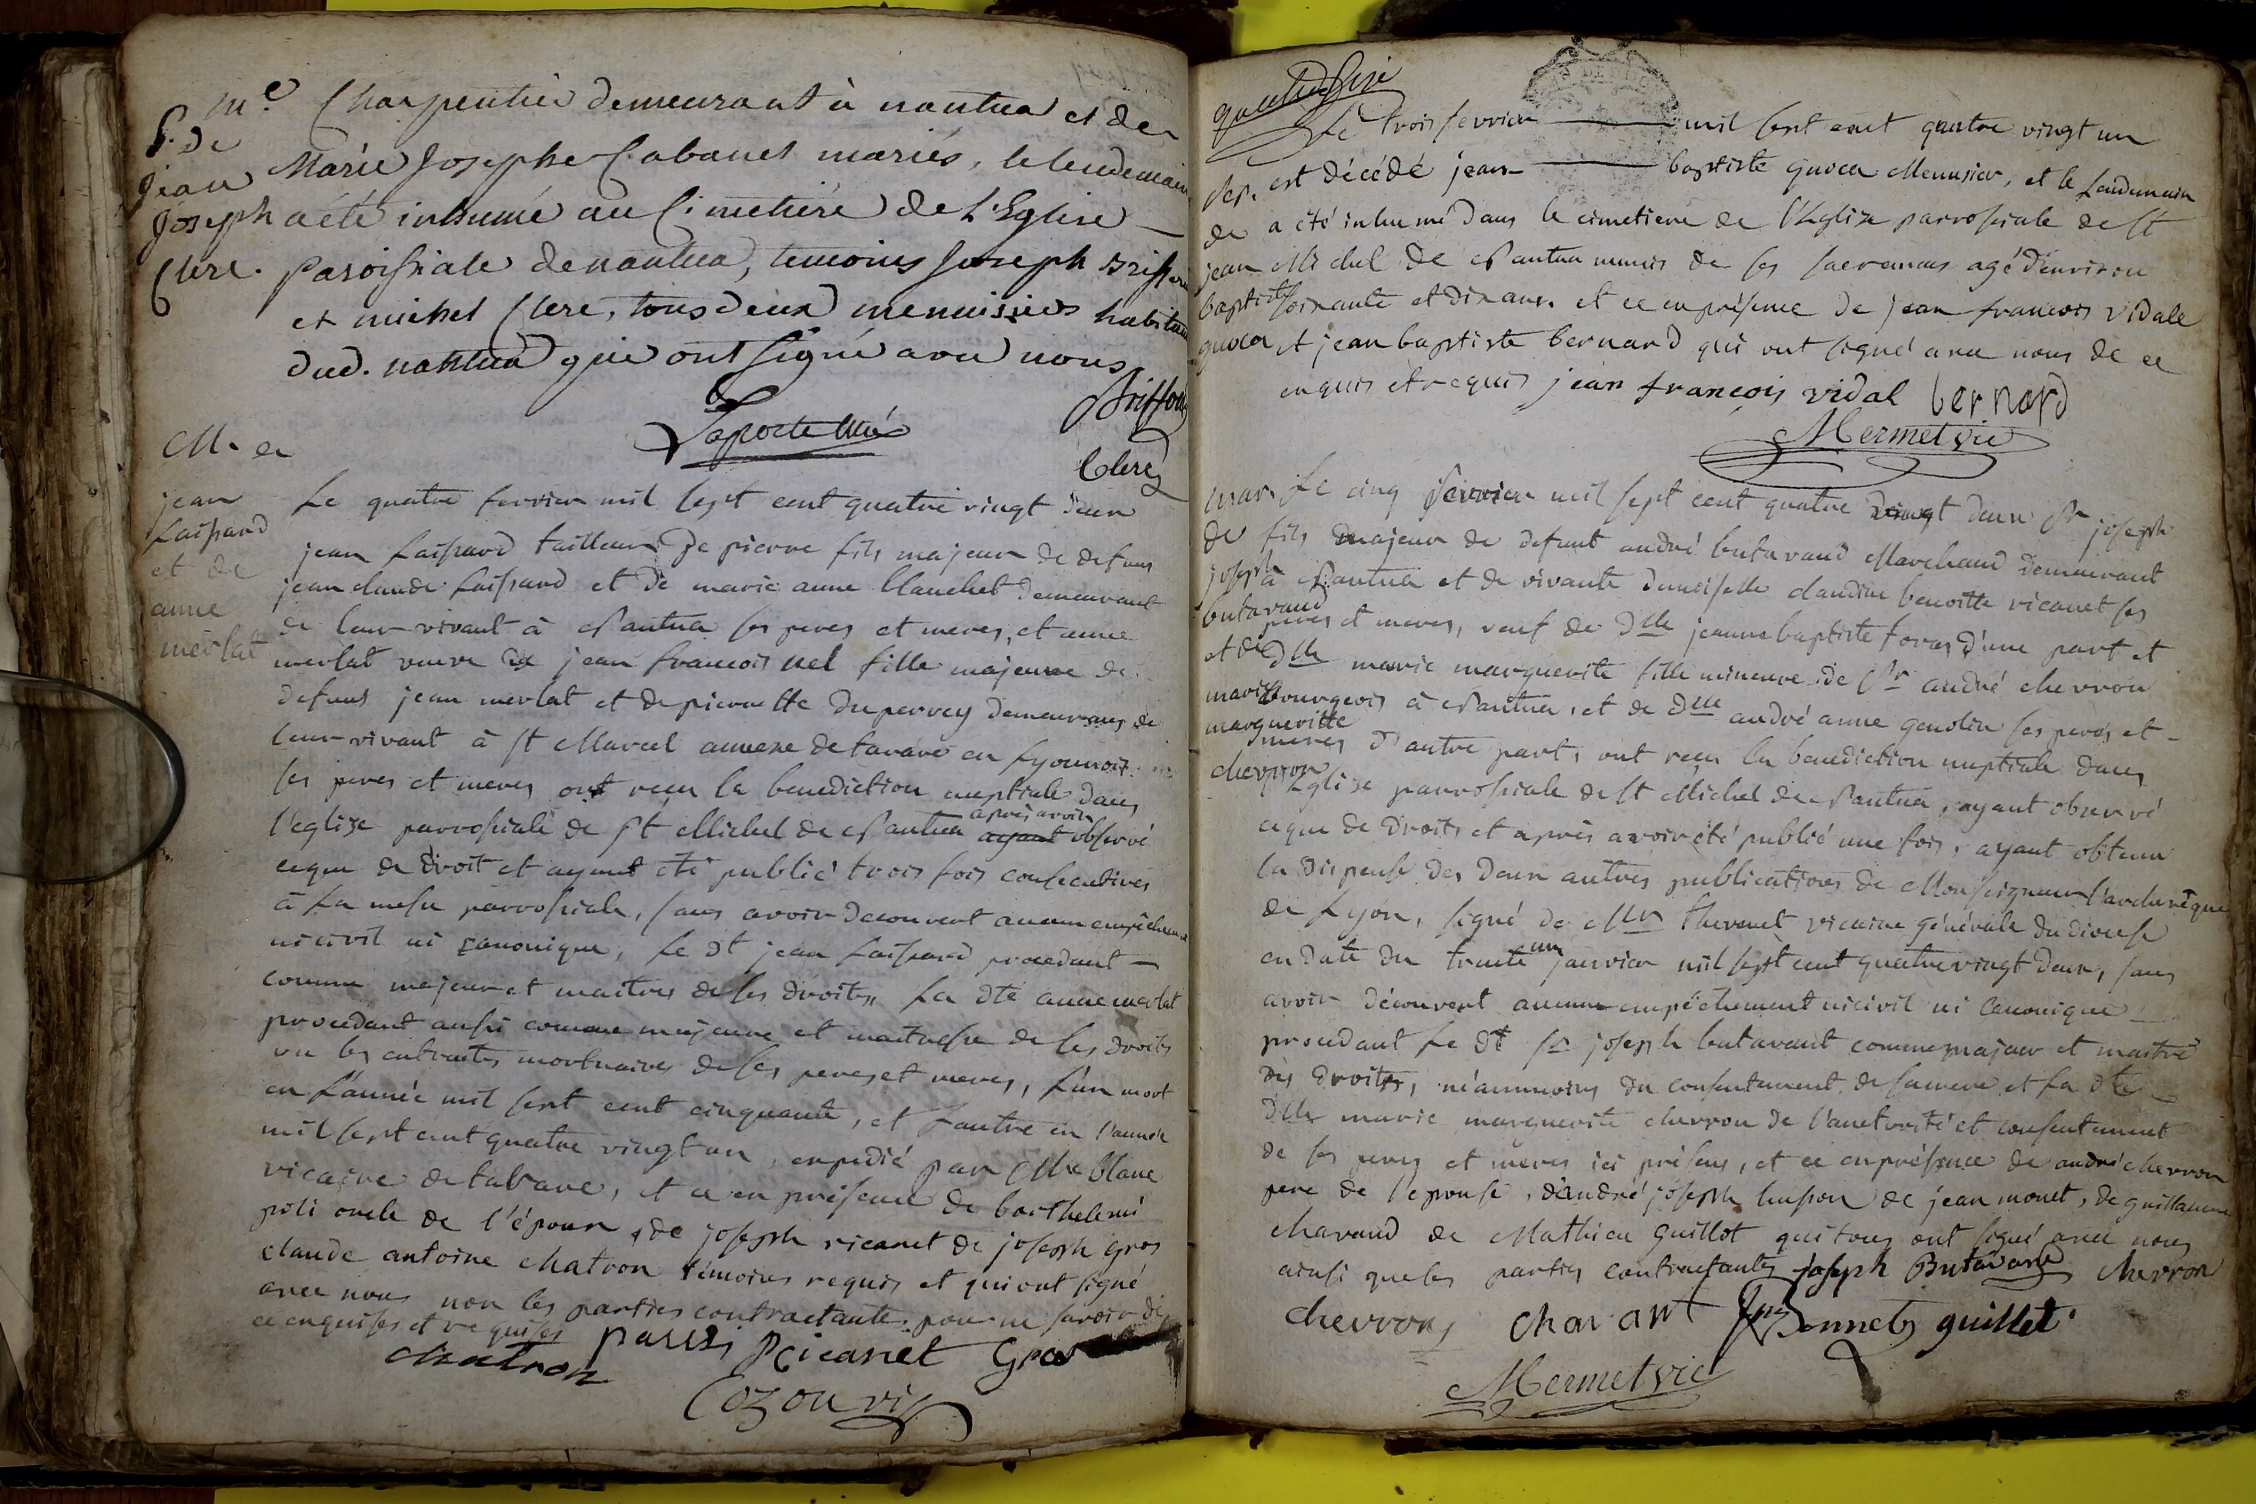 S. de
jean
joseph
Clerc.
me Charpentier demeurant à nantua et de
Marie Josephe Cabanet mariés, le lendemain
a été inhumé au Cimetiére de L'Eglise
paroissiale de nantua, temoins Joseph Brisson
et michel Clerc, tous deux menuisiers habitans
dud. nantua qui ont signé avec nous
Brisson
Laporte
Clerc
M. de
jean
Laissard
et de
anne
merlat
Le quatre fevrier mil sept cent quatre vingt deux
jean Laissard tailleur de pierre fils majeur de defunt
jean claude Laissard et de marie anne blanchet demeurant
de leur vivant à Nantua ses peres et meres, et anne
merlat veuve de jean francois nel fille majeure de
defunt jean merlat et de pierrette duperrey demeurans de
leur vivant à st Marcel annexe de tarare en Lyonnois
ses peres et meres ont recu la benediction nuptiale dans
l'eglize parrossiale de st Michel de Nantua ayant après avoir observé
ce que de droit et ayant été publié trois fois consecutives
à la messe parrossiale, sans avoir decouvert aucun empêchement
ni civil ni canonique, Le dt jean Laissard procedant
comme majeur et maitres de ses droits, La dte anne merlat
procedant aussi comme majeure et maitresse de ses droits
vu les extraits mortuaires de ses peres et meres, L'un mort
en L'année mil sept cent cinquante, et L'autre en l'année
mil sept cent quatre vingt un, expedié par Mre blanc
vicaire de tarare, et ce en présence de barthelemi
poli oncle de l'époux, de joseph ricanet de joseph gros
claude antoine chatron témoins requis et qui ont signé
avec nous non les parties contractantes pour ne savoir de
ce enquises et requises
chatron Ricanet Gros
Cozon vic
Le trois fevrier mil sept cent quatre vingt un
Sep.
de
jean
baptiste
guoca
est décédé jean baptiste guoca Menusier, et le Lendemain
a été inhumé dans le cimetiere de l'Eglize parrossiale de st
Michel de Nantua munis de ses sacremens agé d'environ
soixante et dix ans. et ce en présence de jean francois vidale
et jean baptiste bernard qui ont signé avec nous de ce
enquis et requis jean françois vidal bernard
Mermet vic
mar.
de
joseph
butavand
et de
marie
marguerite
chevron
Le cinq fevrier mil sept cent quatre vingt deux Sr joseph
fils majeur de defunt andré butavand Marchand demeurant
à Nantua et de vivante demoiselle claudine benoitte ricanet ses
peres et meres, veuf de Dlle jeanne baptiste foras d'une part et
Dlle marie marguerite fille mineure de Sr andré chevron
Bourgeois à Nantua, et de Dlle andré anne genolin ses peres et
meres d'autre part, ont recu la benediction nuptiale dans
l'Eglize parrossiale de st Michel de Nantua, ayant observé
ce que de droit, et après avoir été publié une fois, ayant obtenu
la dispense des deux autres publications de Monseigneur l'archevêque
de Lyon, signé de Mr thevenet vicaire générale du diocese
en date du trente un janvier mil sept cent quatre vingt deux, sans
avoir découvert aucun empêchement ni civil ni canonique
procedant Le dt Sr joseph butavant comme majeur et maitre
des droits, néanmoins du consentement de sa mere et La dte
Dlle marie marguerite chevron de l'authorité et consentement
de ses peres et meres ici présens, et ce en présence de andré chevron
pere de l'epouse, d'andré joseph de jean monet, de guillaume
chavand de Mathieu guillot qui tous ont signé avec nous
ainsi que les parties contractantes joseph Butavand chevron
chevron Chavant Jn Monnet guillet
Mermet vic